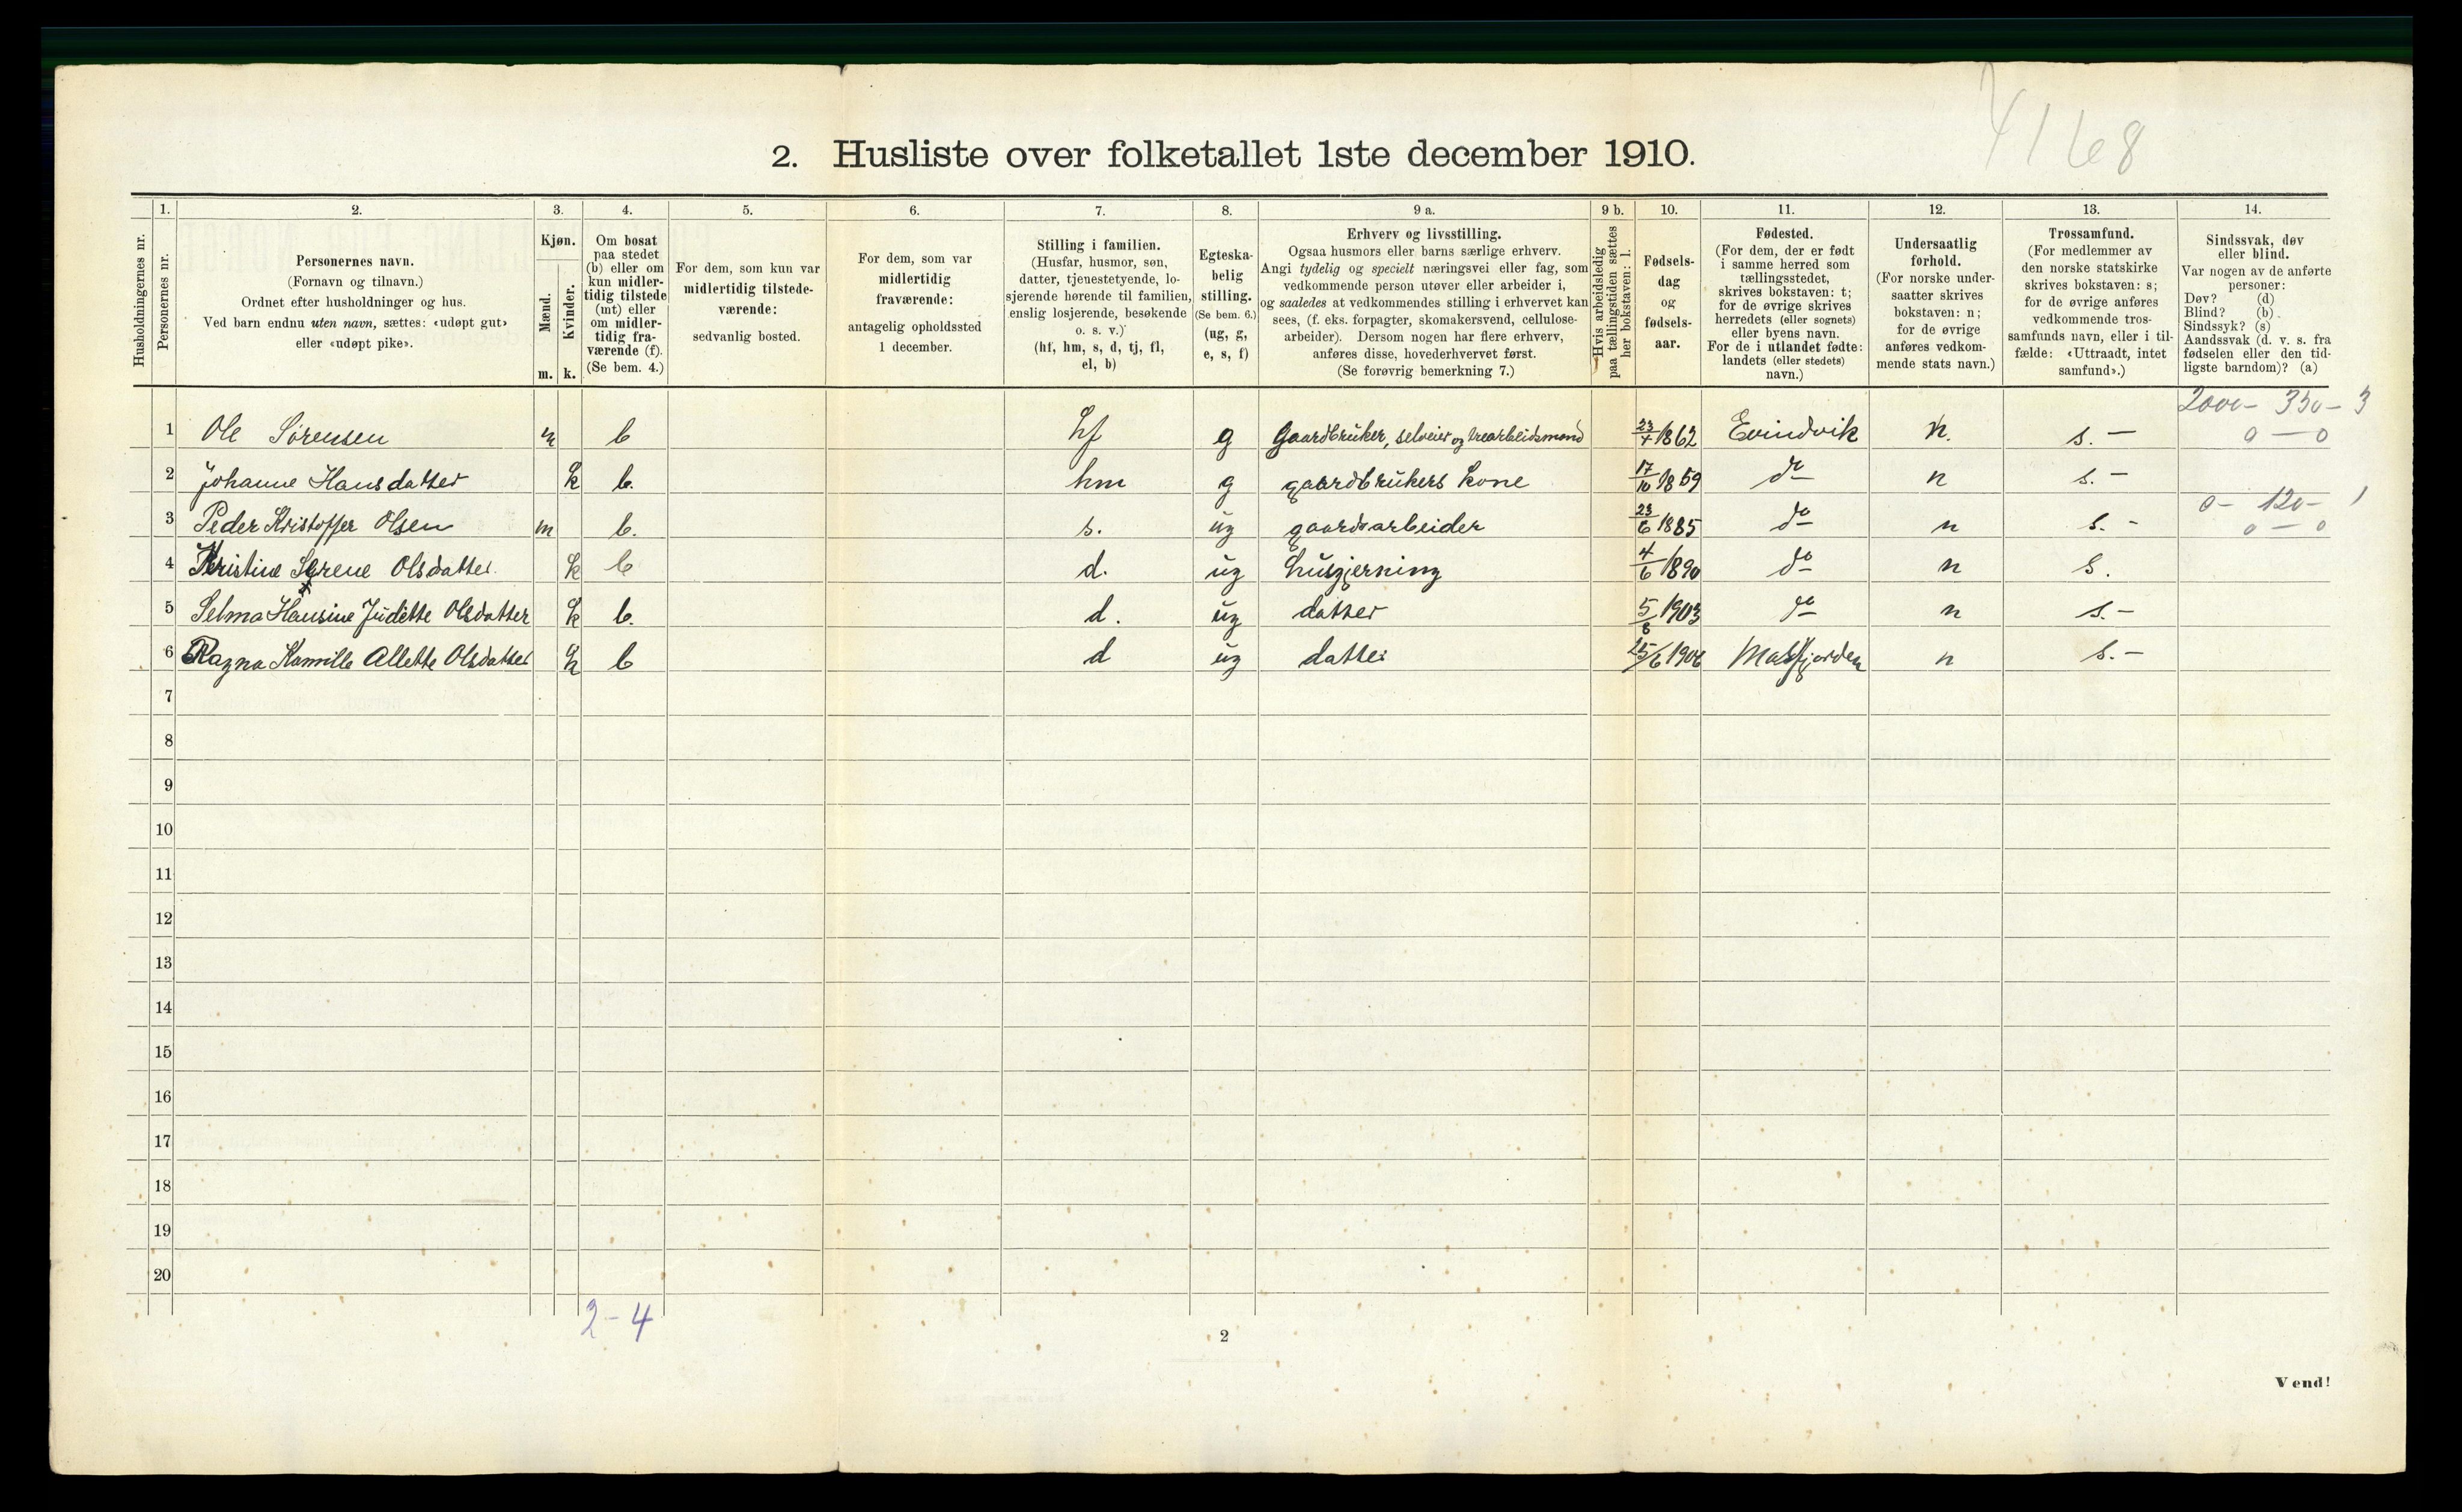 4168
2. Husliste over folketallet 1ste december 1910.
Husholdningernes nr.
1.
Personernes nr.
2.
Personernes navn.
(Fornavn og tilnavn.)
Ordnet efter husholdninger og hus.
Ved barn endnu uten navn, sættes: «udøpt gut»
eller «udøpt pike».
3.
Kjøn.
Mænd.
Kvinder.
m. k.
4.
Om bosat
paa stedet
(b) eller om
kun midler-
tidig tilstede
(mt) eller
om midler-
tidig fra-
værende (f).
(Se bem. 4.)
5.
For dem, som kun var
midlertidig tilstede-
værende:
sedvanlig bosted.
6.
For dem, som var
midlertidig
fraværende:
antagelig opholdssted
1 december.
7.
Stilling i familien.
(Husfar, husmor, søn,
datter, tjenestetyende, lo-
sjerende hørende til familien,
enslig losjerende, besøkende
o. s. v.)
(hf, hm, s, d, tj, fl,
el, b)
8.
Egteska-
belig
stilling.
(Se bem. 6.)
(ug, g,
e, s, f)
9 a.
Erhverv og livsstilling.
Ogsaa husmors eller barns særlige erhverv.
Angi tydelig og specielt næringsvei eller fag, som
vedkommende person utøver eller arbeider i,
og saaledes at vedkommendes stilling i erhvervet kan
sees, (f. eks. forpagter, skomakersvend, cellulose-
arbeider). Dersom nogen har flere erhverv,
anføres disse, hovederhvervet først.
(Se forøvrig bemerkning 7.)
9 b.
Hvis arbeidsledig
paa tællingstiden sættes
her bokstaven: l.
10.
Fødsels-
dag
og
fødsels-
aar.
11.
Fødested.
(For dem, der er født
i samme herred som
tællingsstedet,
skrives bokstaven: t;
for de øvrige skrives
herredets (eller sognets)
eller byens navn.
For de i utlandet fødte:
landets (eller stedets)
navn.)
12.
Undersaatlig
forhold.
(For norske under-
saatter skrives
bokstaven: n;
for de øvrige
anføres vedkom-
mende stats navn.)
13.
Trossamfund.
(For medlemmer av
den norske statskirke
skrives bokstaven: s;
for de øvrige anføres
vedkommende tros-
samfunds navn, eller i til-
fælde: «Uttraadt, intet
samfund».)
14.
Sindssvak, døv
eller blind.
Var nogen av de anførte
personer:
Døv? (d)
Blind? (b)
Sindssyk? (s)
Aandssvak (d. v. s. fra
fødselen eller den tid-
ligste barndom)? (a)
2000 - 350 - 3
1 Ole Sørensen m b hf g Gaardbruker, selveier og trearbeidsmand 23/4 1862 Evindvik n. s. - 0 - 0
2 Johanne Hansdatter k b. hm g gaardbrukers kone 17/10 1859 do n s. -
0 - 120 - 1
3 Peder Kristoffer Olsen m b. s. ug gaardsarbeider 23/6 1885 do n s. - 0 - 0
4 Kristine Serene Olsdatter. k b d. ug husgjerning 4/6 1890 do n s.
5 Selma Hansine Judètte Olsdatter k b. d. ug datter 5/8 1903 do n s. -
6 Ragna Kamilla Allette Olsdatter k b d ug datter 25/6 1906 Masfjorden n s. -
7
8
9
10
11
12
13
14
15
16
17
18
19
20
2 - 4
2
Vend!